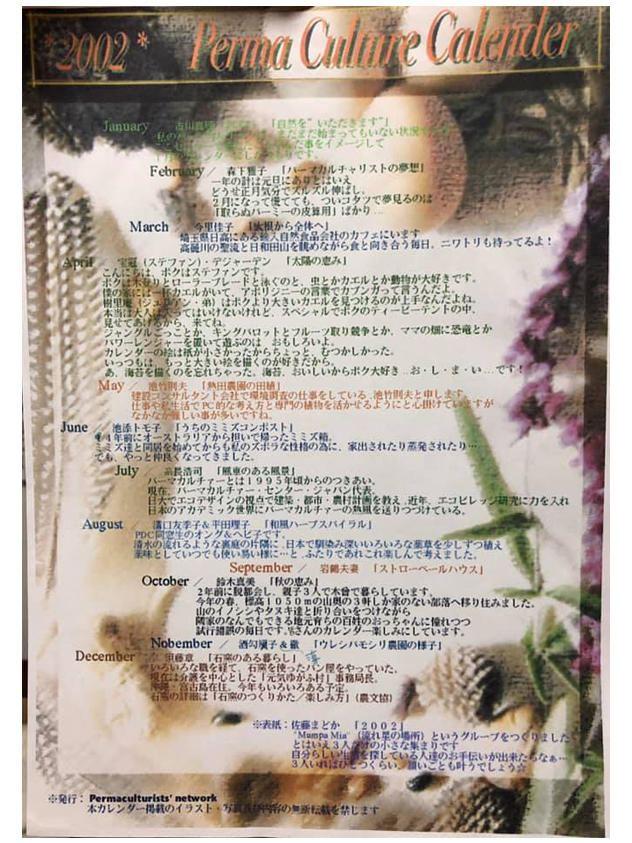 *2002* Perma Culture Calender
January 「自然を"いただきます"」
まだまだ始まってもいない状況で
事をイメージして
February／ 森下雅子 「パーマカルチャリストの夢想」
一年の計は元旦にありとはいえ
どうせ正月気分でズルズル伸ばし、
2月になって慌てても、ついコタツで夢見るのは
「取らぬパーミーの皮算用」ばかり…
March 今里佳子 「大根から全体へ」
埼玉県日高にある輸入自然食品会社のカフェにいます
高麗川の聖流と日和田山を眺めながら食と向き合う毎日、ニワトリも待ってるよ！
April／ 宝冠（ステファン）・デジャーデン 「太陽の恵み」
こんにちは、ボクはステファンです。
ボクは木登りとローラーブレードと泳ぐのと、虫とかカエルとか動物が大好きです。
僕の家には一杯カエルがいて、アボリジニーの言葉でカブンガって言うんだよ。
樹里庵（ジュリアン・弟）はボクより大きいカエルを見つけるのが上手なんだよね。
本当は大人は入ってはいけないけれど、スペシャルでボクのティーピーテントの中、
見せてあげるから、来てね。
ジャングルごっことか、キングパロットとフルーツ取り競争とか、ママの畑に恐竜とか
パワーレンジャーを置いて遊ぶのは おもしろいよ。
カレンダーの絵は紙が小さかったからちょっと、むつかしかった。
いっつもは、もっと大きい絵を描くのが好きだから。
あ、海苔を描くのを忘れちゃった、海苔、おいしいからボク大好き…お・し・ま・い…です！
May ／ 池竹則夫 「熱田農園の田植」
建設コンサルタント会社で環境調査の仕事をしている、池竹則夫と申します。
仕事や私生活でPC的な考え方と専門の植物を活かせるようにと心掛けていますが
なかなか難しい事が多いですね。
June ／ 池添トモ子 「うちのミミズコンポスト」
4年前にオーストラリアから担いで帰ったミミズ箱。
ミミズ達と同居を始めてからも私のズボラな性格の為に、家出されたり蒸発されたり…
でも、やっと仲良くなってきました。
July ／ 高長浩司 「風車のある風景」
パーマカルチャーとは1995年頃からのつきあい。
現在、パーマカルチャー・センター・ジャパン代表。
日大でエコデザインの視点で建築・都市・農村計画を教え、近年、エコビレッジ研究に力を入れ
日本のアカデミック世界にパーマカルチャーの熱風を送りつつけている。
August ／ 濱口友季子＆平田理子 「和風ハーブスパイラル」
PDC同窓生のオング＆ヘビ子です。
清水の流れるような裏庭の片隅に、日本で馴染み深いいろいろな薬草を少しずつ植え
薬味としていつでも使い易い様に…と、ふたりであれこれ楽しんで考えました。
September ／ 岩鶴夫妻 「ストローベールハウス」
October ／ 鈴木真美 「秋の恵み」
2年前に脱都会し、親子3人で木曾で暮らしています。
今年の春、標高1050mの山奥の3軒しか家のない部落へ移り住みました。
山のイノシシやタヌキ達と折り合いをつけながら
隣家のなんでもできる地元育ちの百姓のおっちゃんに憧れつつ
試行錯誤の毎日です。皆さんのカレンダー楽しみにしています。
Nobember ／ 酒匂 子＆徹 「ウレシパモシリ農園の様子」
December ／ 須藤章 「石窯のある暮らし」
いろいろな職を経て、石窯を使ったパン屋をやっていた。
現在は介護を中心とした「元気ゆがふ村」事務局長。
沖縄・宮古島在住。今年もいろいろある予定。
石窯の詳細は「石窯のつくりかた／楽しみ方」（農文協）
※表紙：佐藤まどか 「2002」
"Mumpa Mia"（流れ星の場所）というグループをつくりました
とはいえ3人だけの小さな集まりです
自分らしい生活を探している人達のお手伝いが出来たらなぁ…
3人いればひとつくらい、願いごとも叶うでしょう☆
※発行： Permaculturists' network
本カレンダー掲載のイラスト・写真及び内容の無断転載を禁じます